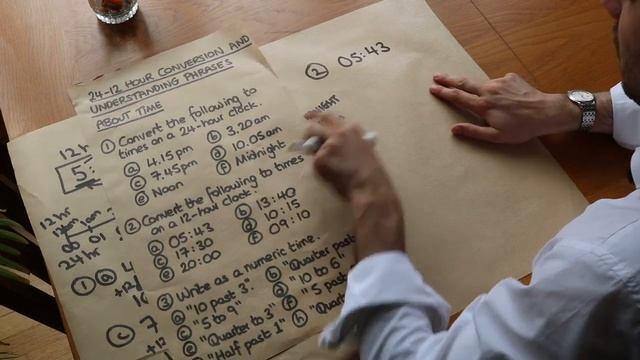 24-12 HOUR CONVERSION AND
UNDERSTANDING PHRASES
ABOUT TIME
① Convert the following to
times on a 24-hour clock.
ⓐ 4.15pm ⓑ 3.20am
ⓒ 7.45pm ⓓ 10.05am
ⓔ Noon ⓕ Midnight
② Convert the following to times
on a 12-hour clock.
ⓐ 05:43 ⓑ 13:40
ⓒ 17:30 ⓓ 10:15
ⓔ 20:00 ⓕ 09:10
③ Write as a numeric time.
ⓐ "10 past 3" ⓑ "Quarter past
ⓒ "5 to 9" ⓓ "10 to 6"
ⓔ "Quarter to 3" ⓕ "5 past
"Half past 1" ⓗ "Quart
12hr
5:
12 hr
24 hr
① ⓐ 4
+12
16
ⓒ 7
+12
② 05:43